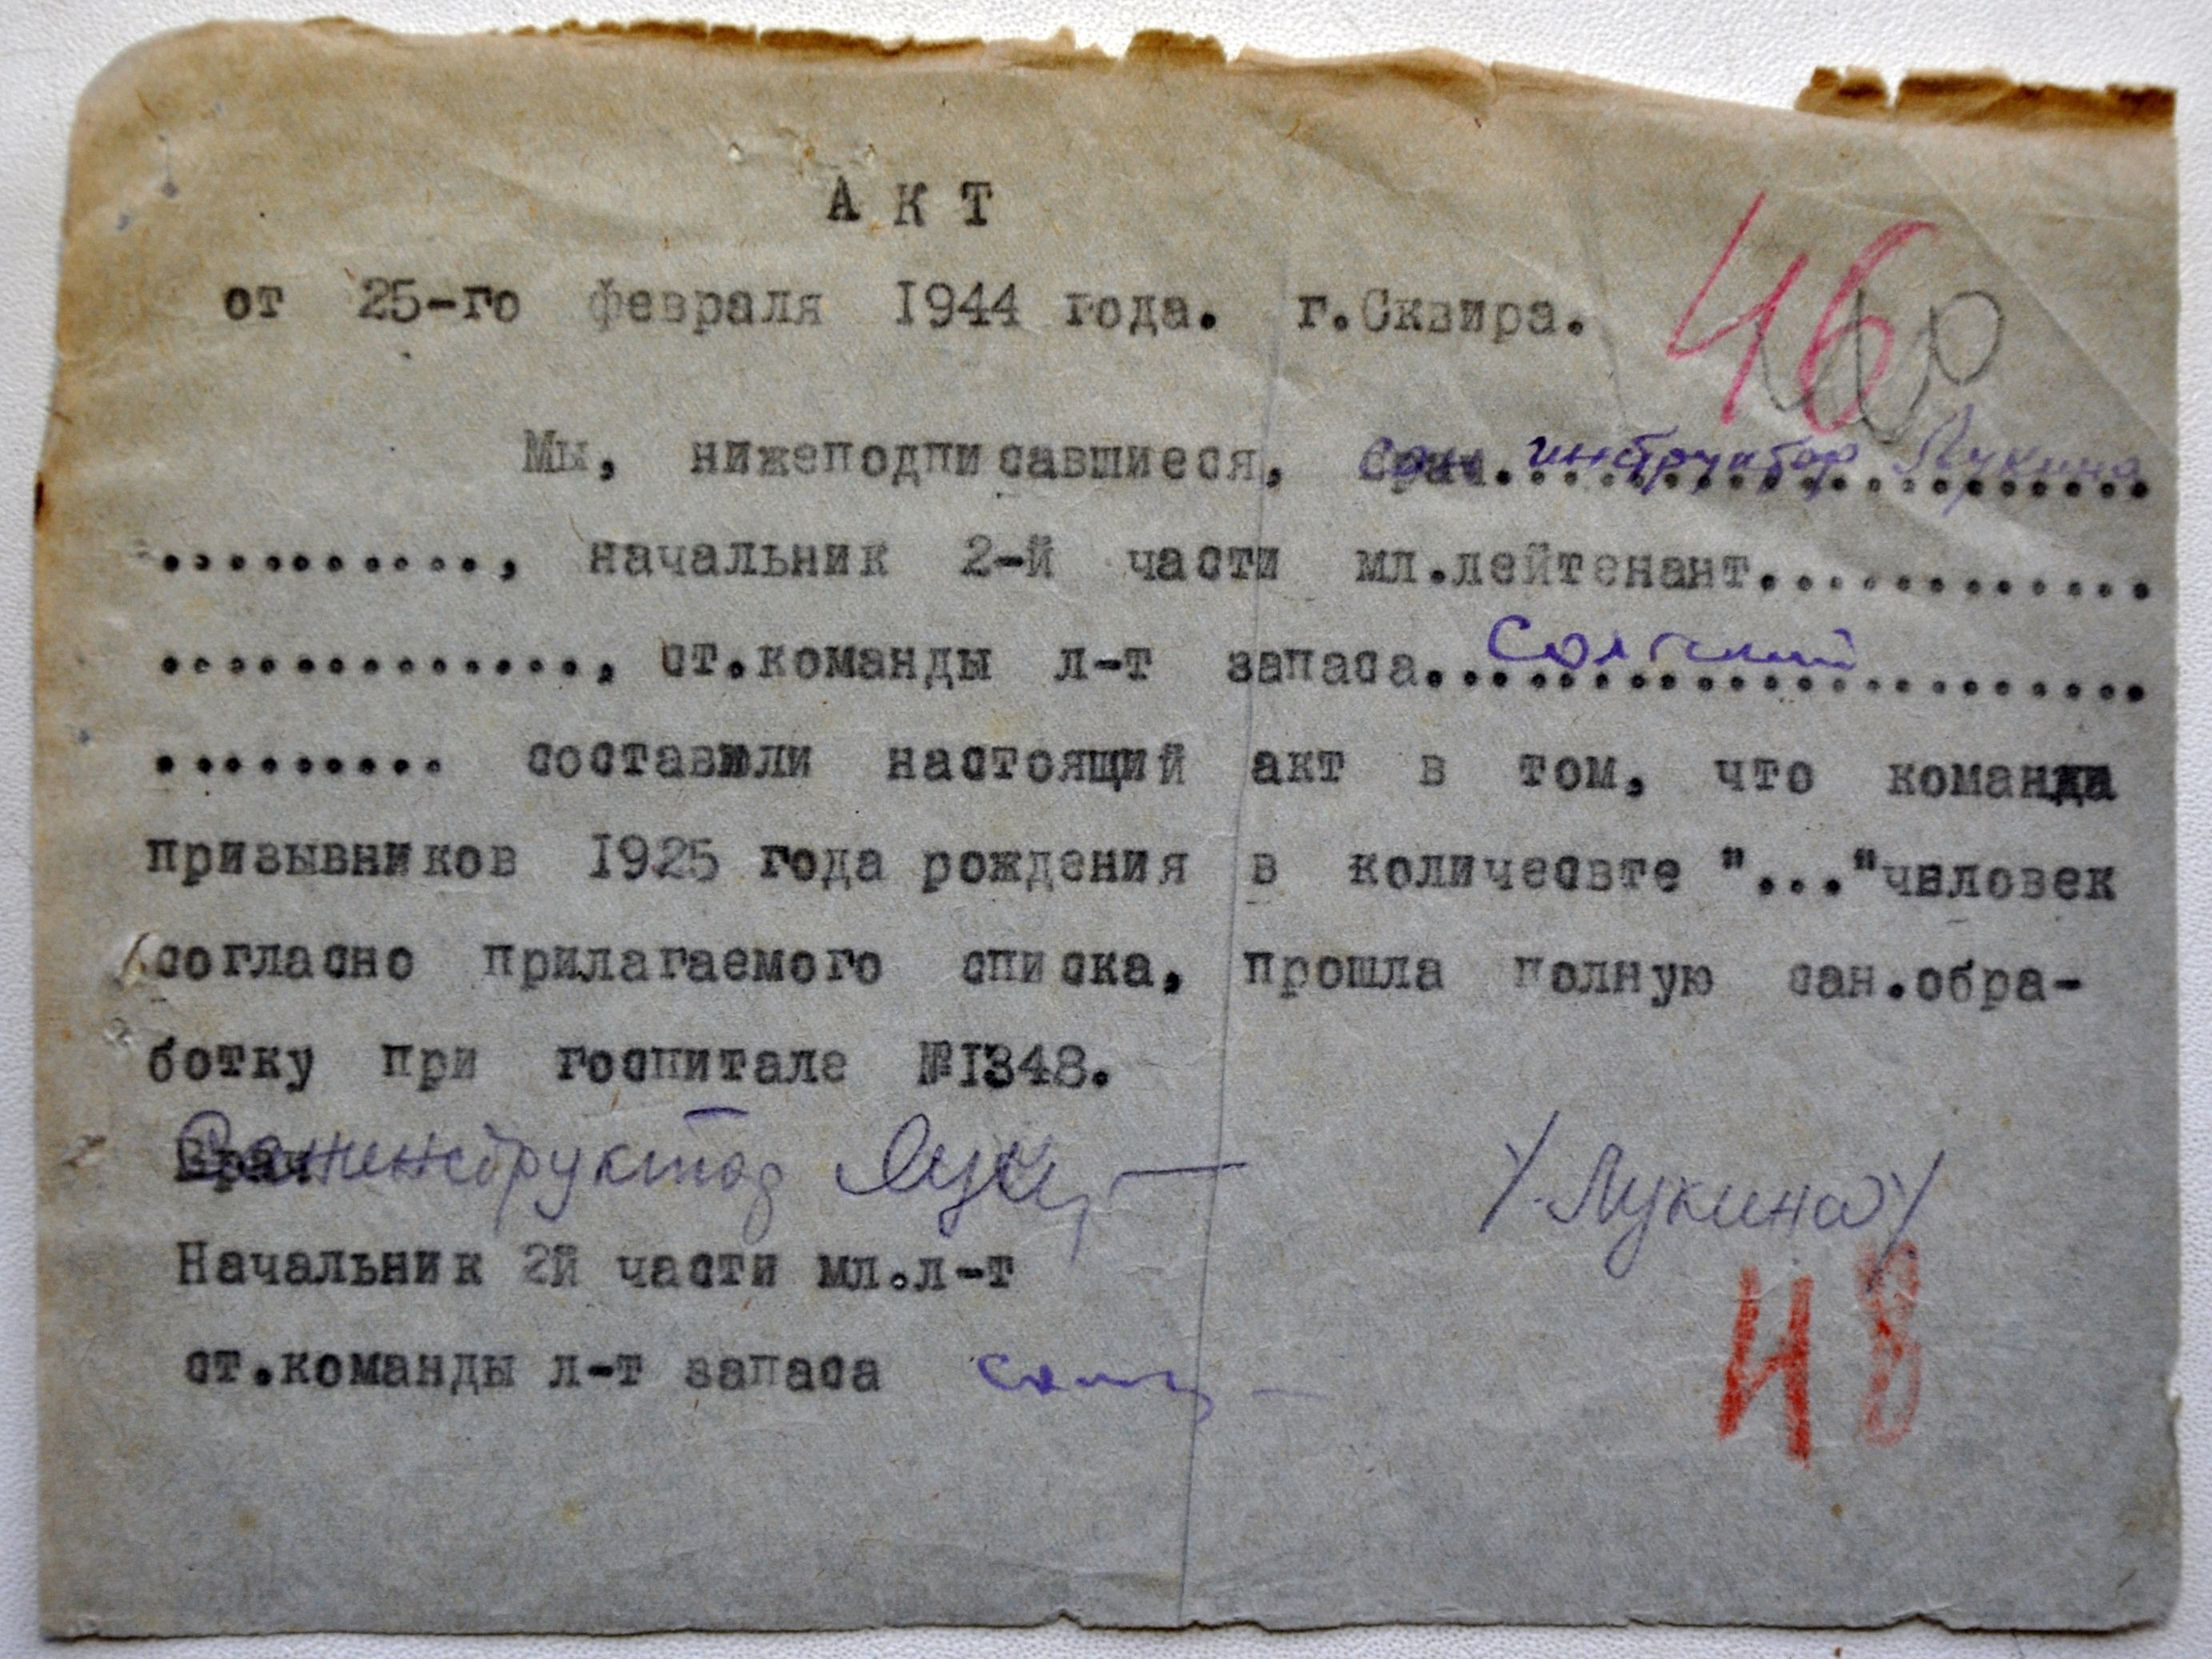 АКТ
46
от 25-го февраля 1944 года. г.Сквира.
Мы, нижеподписавшиеся, Сан. инструктор Лукина
.........., начальник 2-й части мл.лейтенант............
............., ст.команды л-т запаса.....................
......... составили настоящий акт в том, что команда
призывников 1925 года рождения в количесвте "..."человек
согласно прилагаемого списка, прошла полную сан.обра-
ботку при госпитале №1348.
Санинструктор /Лукина/
Начальник 2й части мл.л-т
48
ст.команды л-т запаса